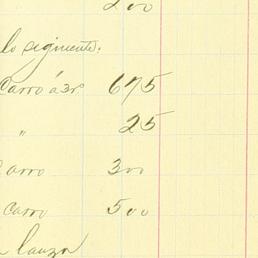 200
lo siguiente:
Carro á 3rs 675
" 25
Carro 300
Carro 500
lanza